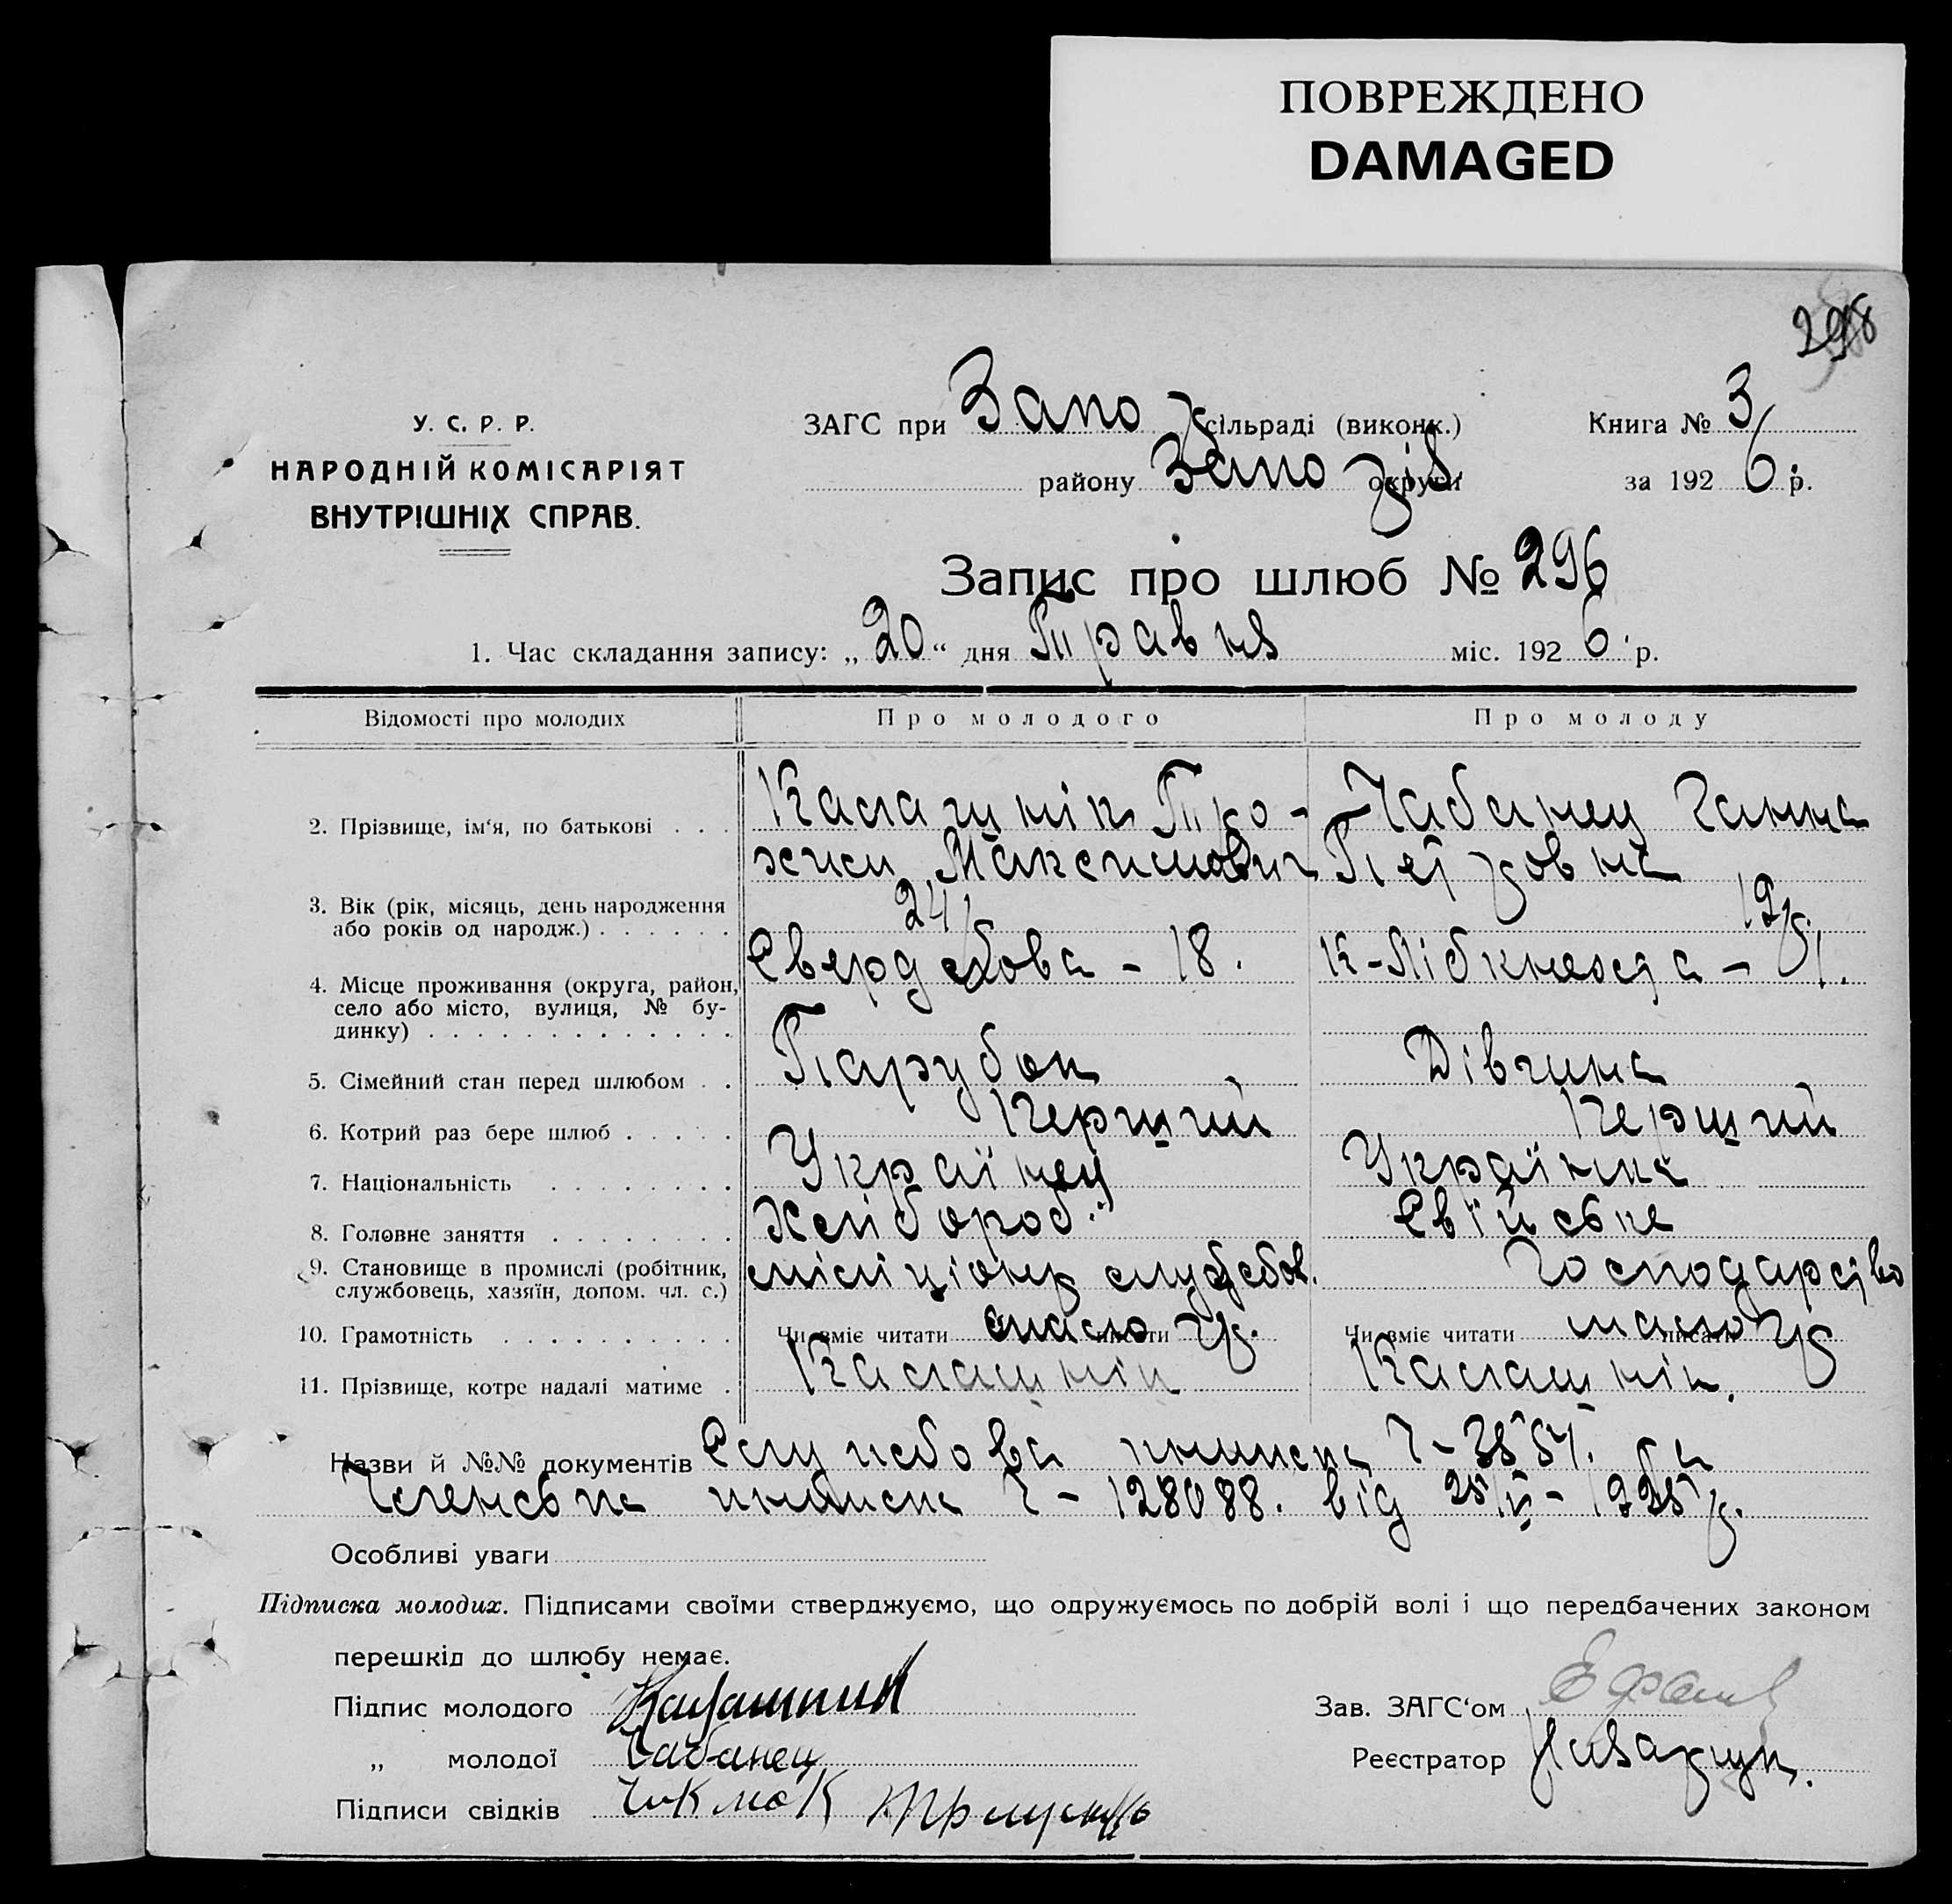 ПОВРЕЖДЕНО
DAMAGED
298
У. С. Р. Р.
НАРОДНІЙ КОМІСАРІЯТ
ВНУТРІШНІХ СПРАВ.
ЗАГС при Запо сільраді (виконк.) Книга № 3/
району Запо округи за 192 6 р.
Запис про шлюб № 296
1. Час складання запису: „ 20 “ дня Травня міс. 192 6 р.
Відомості про молодих Про молодого Про молоду
2. Прізвище, ім‘я, по батькові . . . Калашнік Тихо- Чабанец Ганна
Максимович Петровна
3. Вік (рік, місяць, день народження 24 19
або років од народж.) . . . . . .
Свердлова - 18. К-Лібкнехта -
4. Місце проживання (округа, район,
село або місто, вулиця, № бу-
динку) . . . . . . . . . . . . .
5. Сімейний стан перед шлюбом . . Парубок Дівчина
6. Котрий раз бере шлюб . . . . . Перший Перший
7. Національність . . . . . . . . Українец Українка
8. Головне заняття . . . . . . . . Хлібороб. Свійське
9. Становище в промислі (робітник, міліціонер службов. Господарство
службовець, хазяїн, допом. чл. с.)
10. Грамотність . . . . . . . . . . Чи вміє читати мало писати Чи вміє читати мало писати
11. Прізвище, котре надалі матиме . Калашнік Калашнік.
Назви й №№ документів Службова книжка
Членська книжка Ч - 128088. від 25/ - 1925 р.
Особливі уваги
Підписка молодих. Підписами своїми стверджуємо, що одружуємось по добрій волі і що передбачених законом
перешкід до шлюбу немає.
Підпис молодого Калашник Зав. ЗАГС‘ом
„ молодої Чабанец Реєстратор
Підписи свідків Чикмак